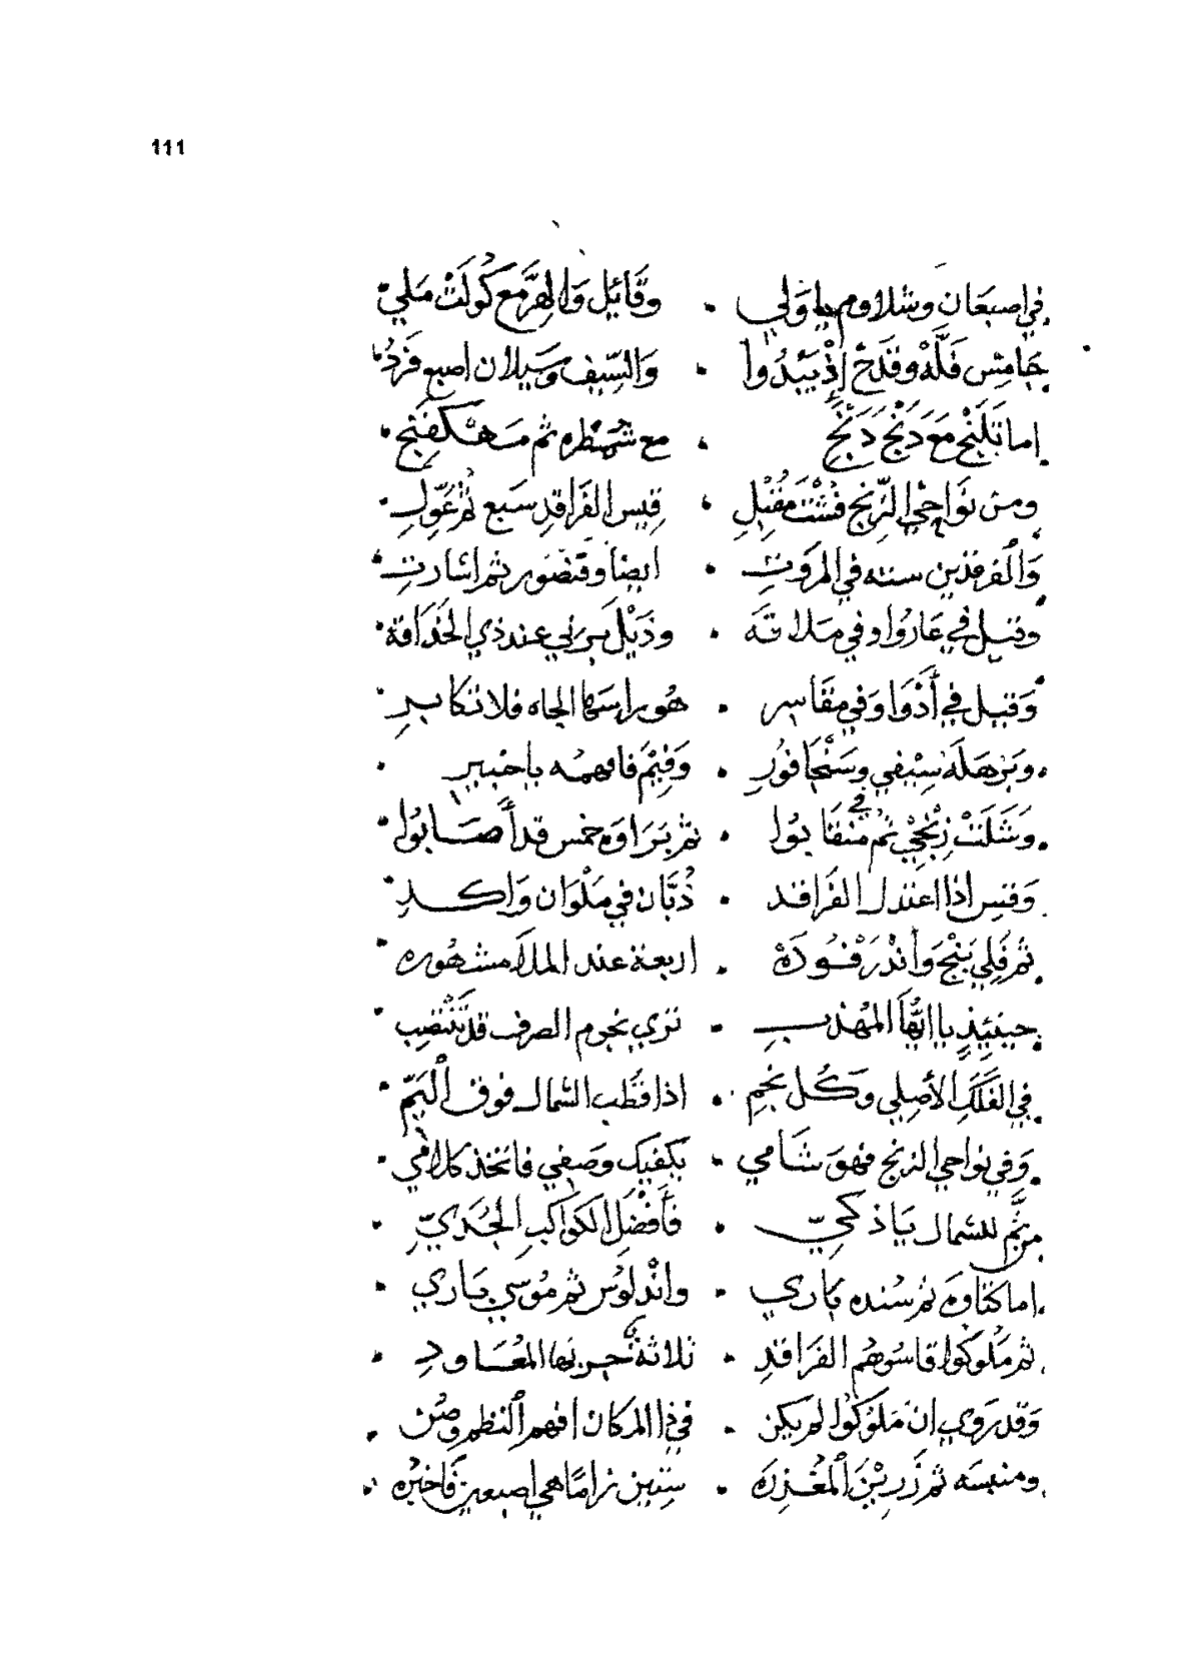 111
في اصبعان وشلاوم يا ولي • وقائيل والهرمع كولت ملي
خامس فله وقدح إذ يبدوا • والسيف وسيلان اصبع فرد
اما تلنج مع دنج دنج • مع شمطره ثم
ومن نواحي الزنج فشت مقبل • قيس الفراقد سبع ثم عول
والفرقدين سته في المروت • ايضا وقنصور ثم اشارت
وقيل في عاروا وفي ملاقه • وذيل بربي عند ذي الحذاقة
وقيل في أذوا وفي مقاسر • هو راسكا الجاه فلا تكابر
وبرهله سيفي وسنجافور • وفيم فافهمه يا خبير
وشلت زنجي ثم في منقابوا • ثم براوه خمس قد أصابوا
وقيس اذا اعتدل الفراقد • ذبان في ملوان واكد
ثم فلي بنج وأندرفوده • اربعة عند الملا مشهوره
حينئذ يا ايها المهذب • تري نجوم الصرف قد تنتصب
في الفلك الأصلي وكل نجم • اذا قطب الشمال فوق اليم
وفي نواحي الزنج فهو شامي • يكفيك وصفي فاتخذ كلامي
من ثم للشمال يا ذكي • فأفضل الكواكب الجدي
اما كتاوه ثم سنده باري • واندلوس ثم موسي جاري
ثم ملوكوا قاسوهم الفراقد • ثلاثة جربها المعاود
وقد روي ان ملوكوا لم يكن • في ذا المكان افهم النظم وصن
ومنبسه ثم زرين المغزره • ستين زاما هي اصبعين فاخبره